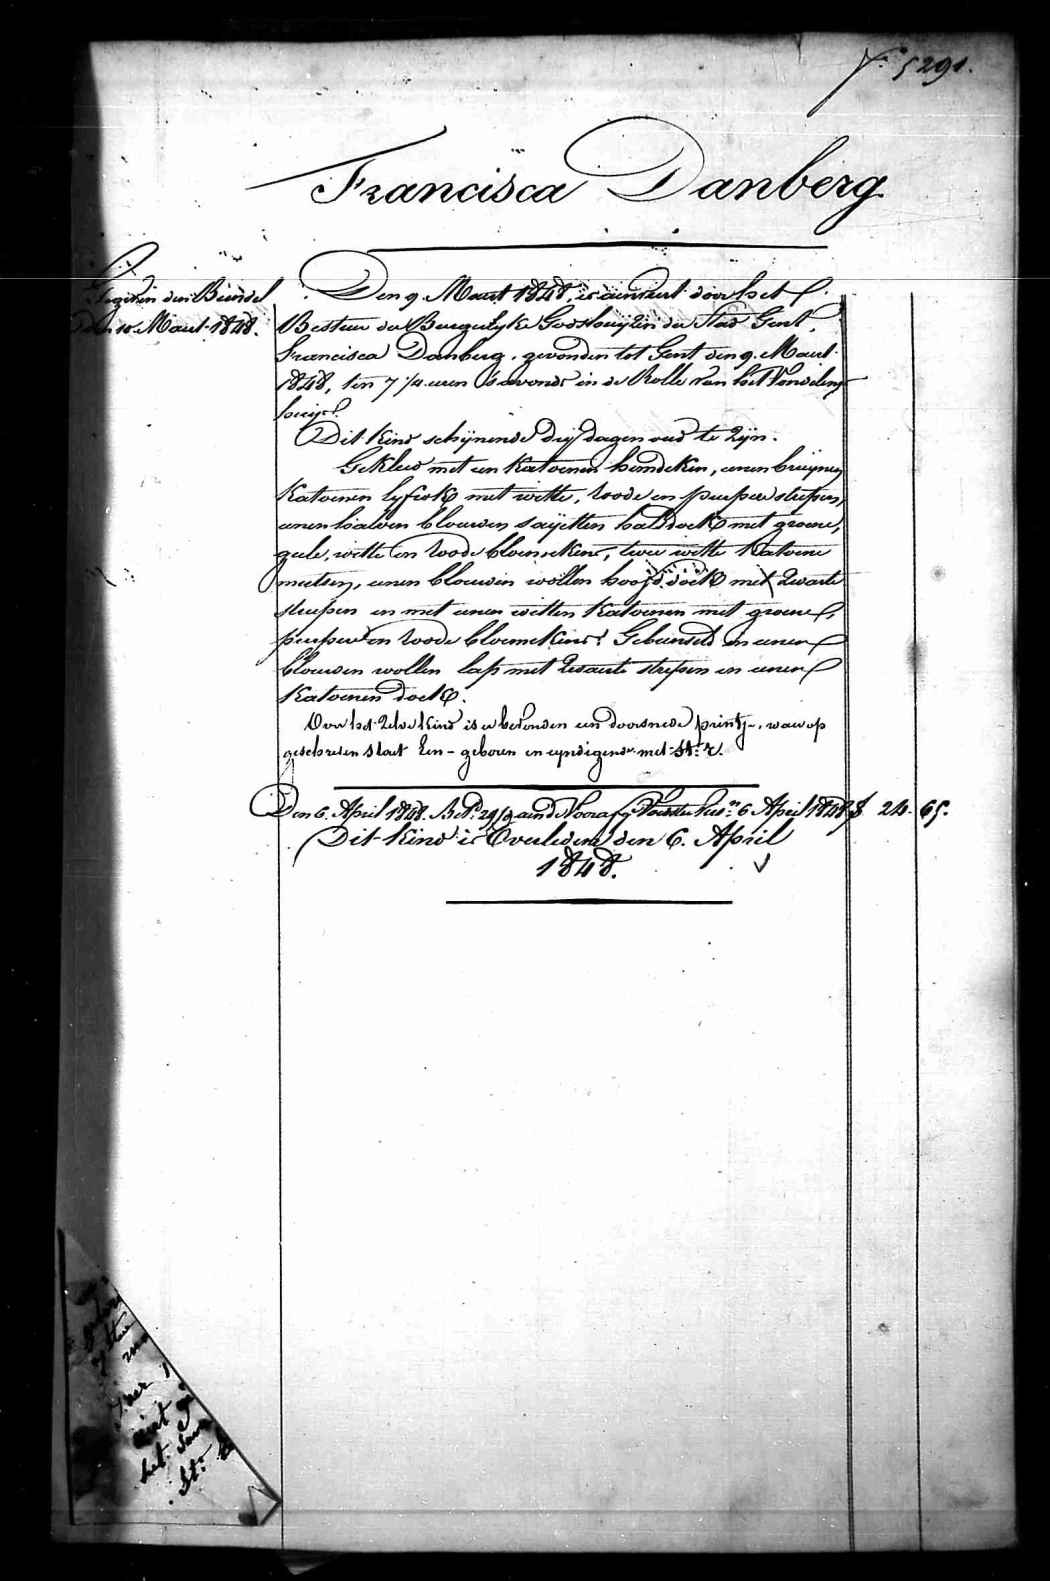 N.° 5291.
Francisca Danberg
den 10 Maart 1848.
Den 9. Maart 1848, is aenveert door het
Bestuer der Burgerlyke Godshuijzen der Stad Gent,
Francisca Danberg, gevonden tot Gent den 9. Maart
1848, ten 7 1/4 uren 's avonds in de Rolle van het Vondeling
huijs.
Dit Kind schijnende drij dagen oud te zijn.
Gekleed met een Katoenen hemdeken, eenen bruijnen
Katoenen lyfrok met witte, roode en purpere strepen,
eenen halven blauwen saijetten halsdoek met groene,
gele, witte en roode bloemekens, twee witte Katoene
mutsen, eenen blauwen wollen hoofd doek met zwarte
strepen en met eenen witten Katoenen met groene,
purpere en roode bloemekens. Gebunseld in eenen
blauwen wollen lap met zwarte strepen en eenen
Katoenen doek.
Voor het zelve Kind is er bevonden een doorsnede printj-, waer op
geschreven staet Een - geboren en eyndigende met St: r.
Den 6. April 1848. 6 April 1848 f 24. 65.
Dit Kind is Overledene den 6. April
1848.
St: